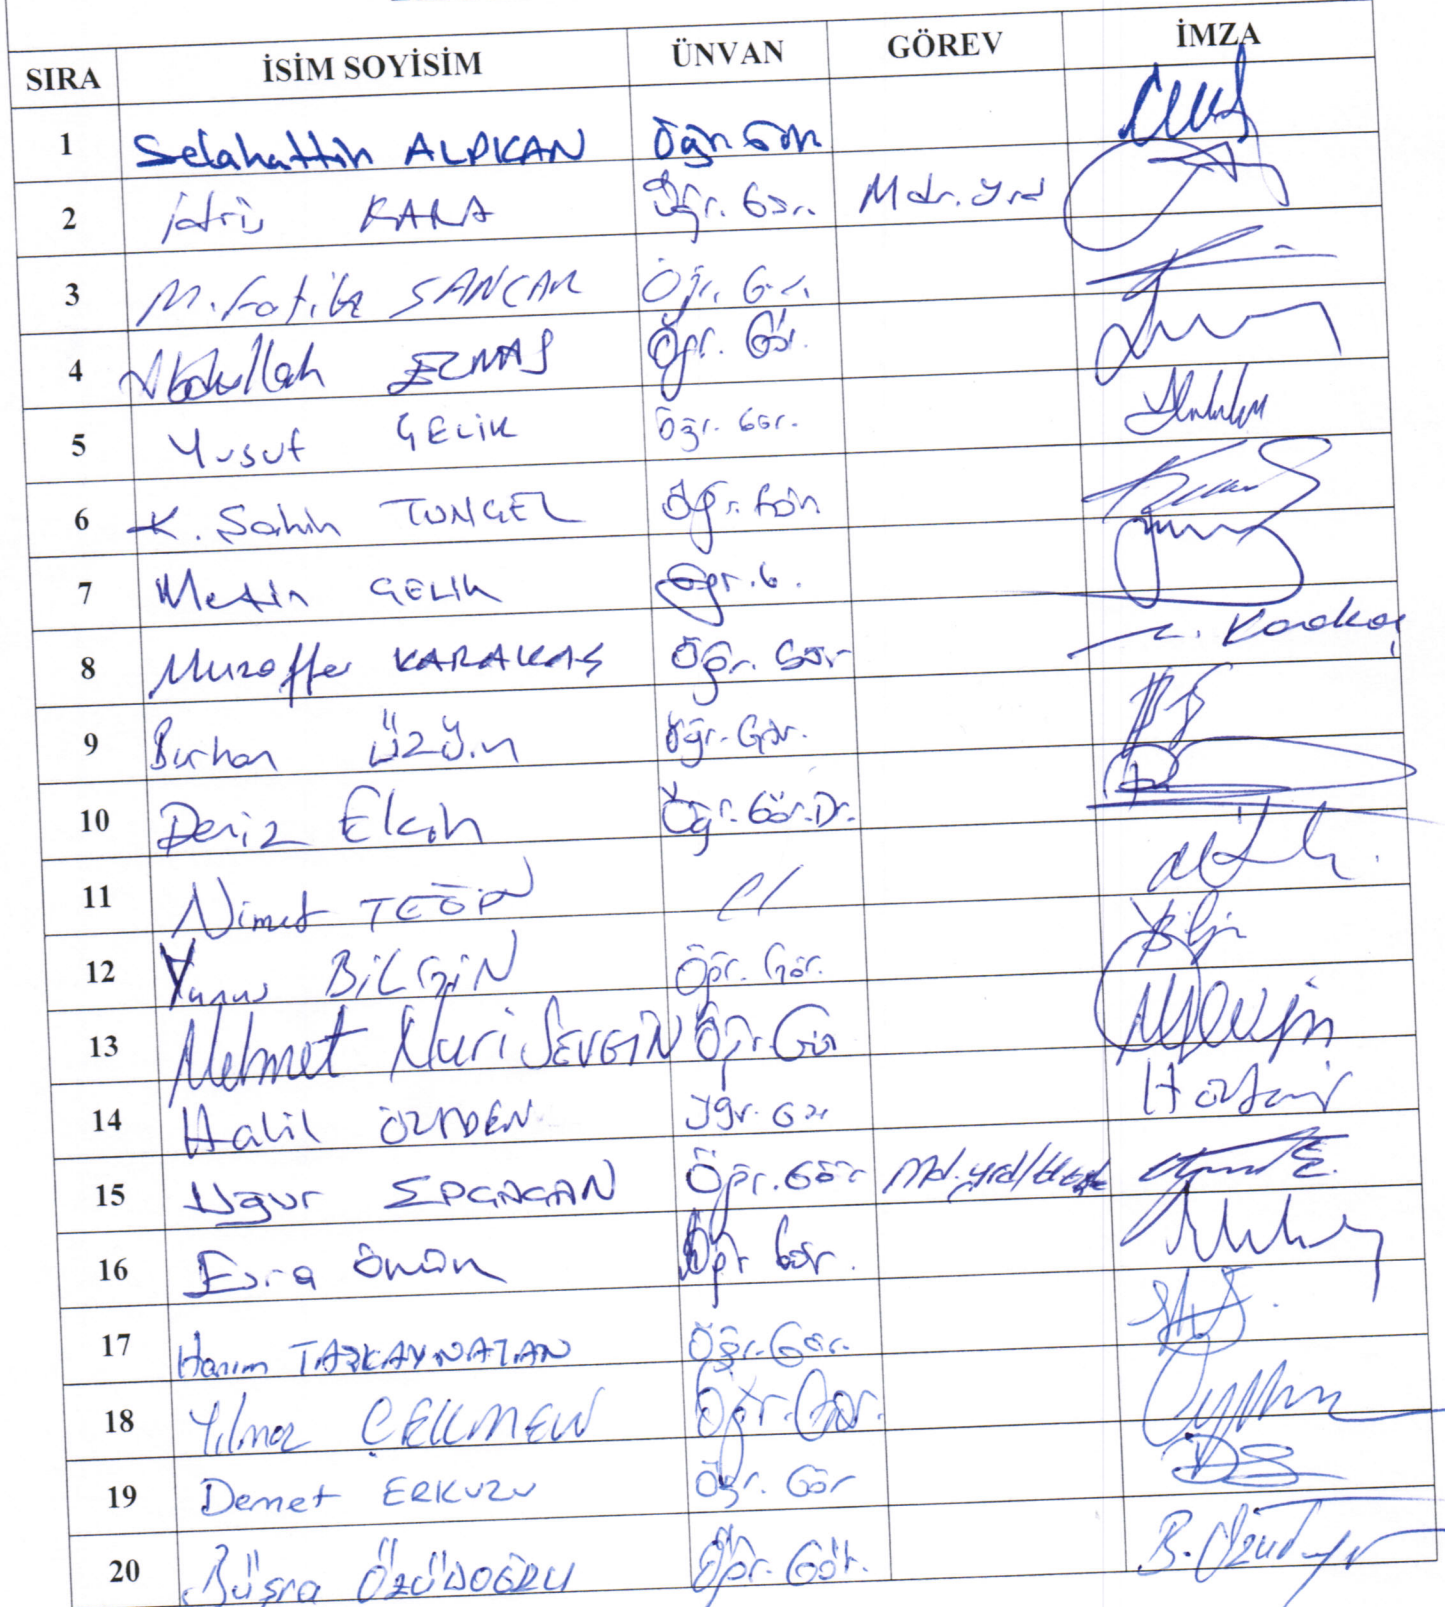 SIRA İSİM SOYİSİM ÜNVAN GÖREV İMZA
1 Selahattin ALPKAN Öğr. Gör
2 İdris KARA Öğr. Gör. Mdr. Yrd
3 M. Fatih SANCAR Öğr. Gör.
4 Abdullah EZMAŞ Öğr. Gör.
5 Yusuf ÇELİK Öğr. Gör.
6 K. Şahin TUNÇEL Öğr. Gör
7 Metin ÇELİK Öğr. G.
8 Muzaffer KARAKAŞ Öğr. Gör
9 Burhan ÜZÜM Öğr. Gör.
10 Deniz Elçin Öğr. Gör. Dr.
11 Nimet 
12 Yunus BİLGİN Öğr. Gör.
13 Mehmet Nuri SEVGİN Öğr. Gör
14 Halil ÖZMDEN Öğr. Gör
15 Uğur Öğr. Gör Md. yrd/
16 Esra Önün Öğr Gör.
17 Hanım TAŞKAYNATAN Öğr. Gör.
18 Yılmaz ÇEKMEN Öğr. Gör.
19 Demet ERKUZU Öğr. Gör
20 Büşra ÖZÜDOĞRU Öğr. Gör.